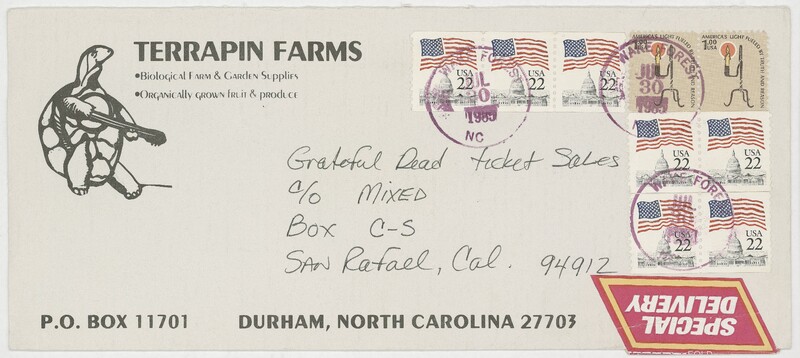 TERRAPIN FARMS
•Biological Farm & Garden Supplies
•Organically grown fruit & produce
USA 22
USA 22
USA 22
WAKE FOREST
JUL
30
1985
NC
AMERICA'S LIGHT FUELED BY TRUTH AND REASON
1.00
AMERICA'S LIGHT FUELED BY TRUTH AND REASON
1.00
USA
WAKE FOREST
JUL
30
1985
USA 22
USA 22
WAKE FORE
USA 22
USA 22
Grateful Dead Ticket Sales
c/o MIXED
Box C-S
SAN Rafael, Cal. 94912
SPECIAL
DELIVERY
P.O. BOX 11701 DURHAM, NORTH CAROLINA 27703